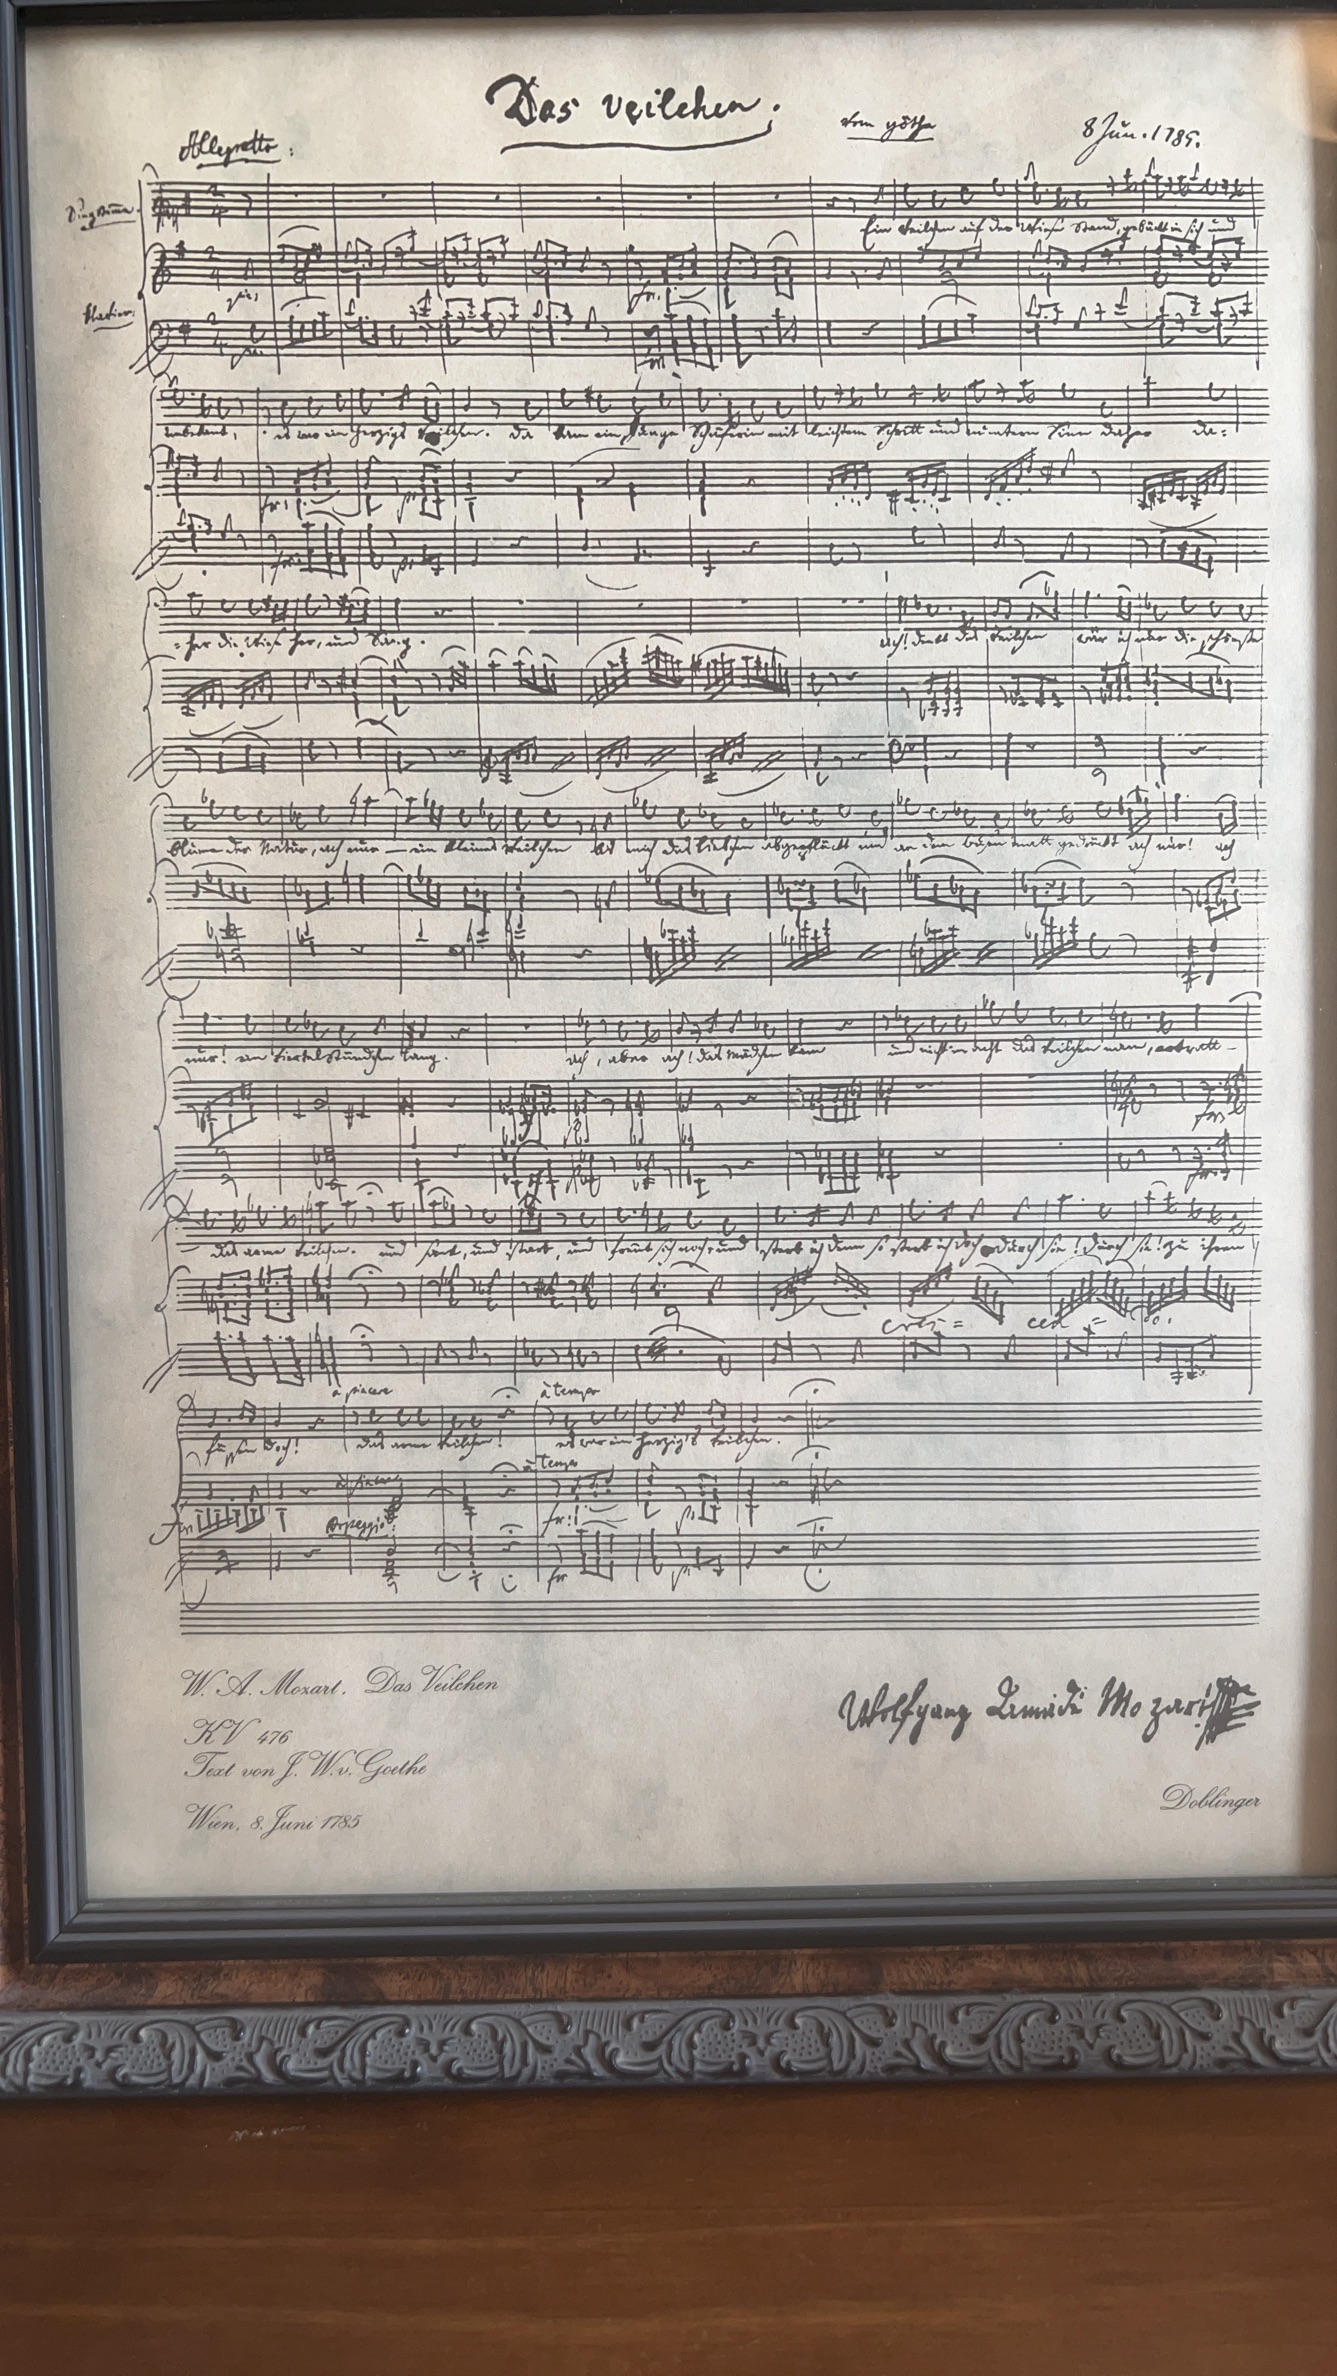 Das Veilchen.
vom göthe
8 Jun. 1785.
Allegretto:
Singstimme.
Klavier.
Ein Veilchen auf der Wiese stand, gebückt in sich und
unbekant, es war ein herziges Veilchen. da kam ein junge Schäferin mit leichtem Schritt und muntern Sinn daher da=
=her die Wiese her, und Sang.
ach! denkt das Veilchen wär ich nur die schönste
blume der Natur, ach nur — ein kleines Veilchen bis mich das liebchen abgepflückt und an dem busen matt gedrückt ach nur! ach
nur! ein Viertelstündchen lang.
ach, aber ach! das Mädchen kam und nicht in acht das Veilchen nam, ertratt —
das arme Veilchen. und und starb, und freut sich noch: und sterb ich denn so sterb ich doch durch sie! durch sie! zu ihren
cres = cen = do.
à piacere
à tempo
füssen doch! das arme Veilchen! es war ein herzigs Veilchen.
à piacere
à tempo
Arpeggio:
W. A. Mozart. Das Veilchen
KV 476
Text von J. W. v. Goethe
Wien, 8. Juni 1785
Wolfgang Amadè Mozart
Doblinger